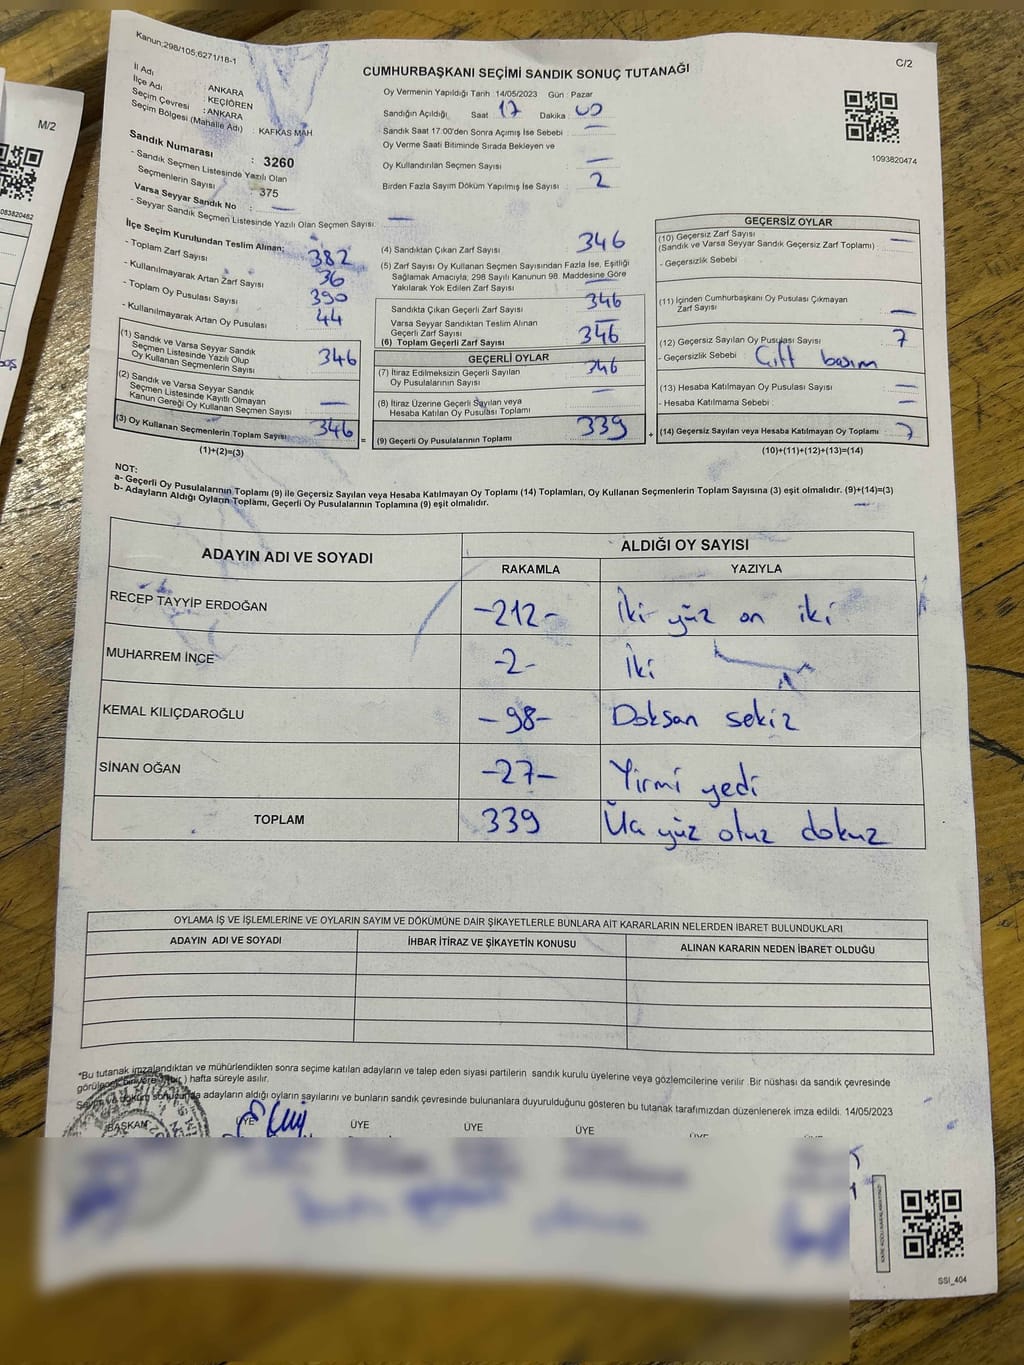 Kanun:298/105,6271/18-1
C/2
CUMHURBAŞKANI SEÇİMİ SANDIK SONUÇ TUTANAĞI
İl Adı : ANKARA
İlçe Adı : KEÇİÖREN
Seçim Çevresi : ANKARA
Seçim Bölgesi (Mahalle Adı) : KAFKAS MAH
Sandık Numarası : 3260
- Sandık Seçmen Listesinde Yazılı Olan
Seçmenlerin Sayısı : 375
Varsa Seyyar Sandık No : —
- Seyyar Sandık Seçmen Listesinde Yazılı Olan Seçmen Sayısı : —
Oy Vermenin Yapıldığı Tarih :14/05/2023 Gün : Pazar
Sandığın Açıldığı Saat 17 Dakika
Sandık Saat 17:00'den Sonra Açımış İse Sebebi : —
Oy Verme Saati Bitiminde Sırada Bekleyen ve
Oy Kullandırılan Seçmen Sayısı : —
Birden Fazla Sayım Döküm Yapılmış İse Sayısı : 2
1093820474
M/2
083820462
İlçe Seçim Kurulundan Teslim Alınan;
- Toplam Zarf Sayısı : 382
- Kullanılmayarak Artan Zarf Sayısı : 36
- Toplam Oy Pusulası Sayısı : 390
- Kullanılmayarak Artan Oy Pusulası : 44
(1) Sandık ve Varsa Seyyar Sandık
Seçmen Listesinde Yazılı Olup
Oy Kullanan Seçmenlerin Sayısı 346
(2) Sandık ve Varsa Seyyar Sandık
Seçmen Listesinde Kayıtlı Olmayan
Kanun Gereği Oy Kullanan Seçmen Sayısı —
(3) Oy Kullanan Seçmenlerin Toplam Sayısı 346
(1)+(2)=(3)
=
(4) Sandıktan Çıkan Zarf Sayısı : 346
(5) Zarf Sayısı Oy Kullanan Seçmen Sayısından Fazla İse, Eşitliği
Sağlamak Amacıyla, 298 Sayılı Kanunun 98. Maddesine Göre
Yakılarak Yok Edilen Zarf Sayısı : —
Sandıkta Çıkan Geçerli Zarf Sayısı 346
Varsa Seyyar Sandıktan Teslim Alınan
Geçerli Zarf Sayısı —
(6) Toplam Geçerli Zarf Sayısı 346
GEÇERLİ OYLAR
(7) İtiraz Edilmeksizin Geçerli Sayılan
Oy Pusulalarının Sayısı : 346
(8) İtiraz Üzerine Geçerli Sayılan veya
Hesaba Katılan Oy Pusulası Toplamı : —
(9) Geçerli Oy Pusulalarının Toplamı : 339
+
GEÇERSİZ OYLAR
(10) Geçersiz Zarf Sayısı : —
(Sandık ve Varsa Seyyar Sandık Geçersiz Zarf Toplamı)
- Geçersizlik Sebebi
(11) İçinden Cumhurbaşkanı Oy Pusulası Çıkmayan
Zarf Sayısı : —
(12) Geçersiz Sayılan Oy Pusulası Sayısı : 7
- Geçersizlik Sebebi : Çift basım
(13) Hesaba Katılmayan Oy Pusulası Sayısı : —
- Hesaba Katılmama Sebebi : —
(14) Geçersiz Sayılan veya Hesaba Katılmayan Oy Toplamı : 7
(10)+(11)+(12)+(13)=(14)
NOT:
a- Geçerli Oy Pusulalarının Toplamı (9) ile Geçersiz Sayılan veya Hesaba Katılmayan Oy Toplamı (14) Toplamları, Oy Kullanan Seçmenlerin Toplam Sayısına (3) eşit olmalıdır. (9)+(14)=(3)
b- Adayların Aldığı Oyların Toplamı, Geçerli Oy Pusulalarının Toplamına (9) eşit olmalıdır.
ADAYIN ADI VE SOYADI
ALDIĞI OY SAYISI
RAKAMLA YAZIYLA
RECEP TAYYİP ERDOĞAN -212- İki yüz on iki
MUHARREM İNCE -2- İki
KEMAL KILIÇDAROĞLU -98- Doksan sekiz
SİNAN OĞAN -27- Yirmi yedi
TOPLAM 339 Üç yüz otuz dokuz
OYLAMA İŞ VE İŞLEMLERİNE VE OYLARIN SAYIM VE DÖKÜMÜNE DAİR ŞİKAYETLERLE BUNLARA AİT KARARLARIN NELERDEN İBARET BULUNDUKLARI
ADAYIN ADI VE SOYADI İHBAR İTİRAZ VE ŞİKAYETİN KONUSU ALINAN KARARIN NEDEN İBARET OLDUĞU
*Bu tutanak imzalandıktan ve mühürlendikten sonra seçime katılan adayların ve talep eden siyasi partilerin sandık kurulu üyelerine veya gözlemcilerine verilir. Bir nüshası da sandık çevresinde
görülecek bir yere (bir) hafta süreyle asılır.
Sayım ve döküm sonucunda adayların aldığı oyların sayılarını ve bunların sandık çevresinde bulunanlara duyurulduğunu gösteren bu tutanak tarafımızdan düzenlenerek imza edildi. 14/05/2023
BAŞKAN ÜYE ÜYE ÜYE ÜYE ÜYE ÜYE
SSİ_404